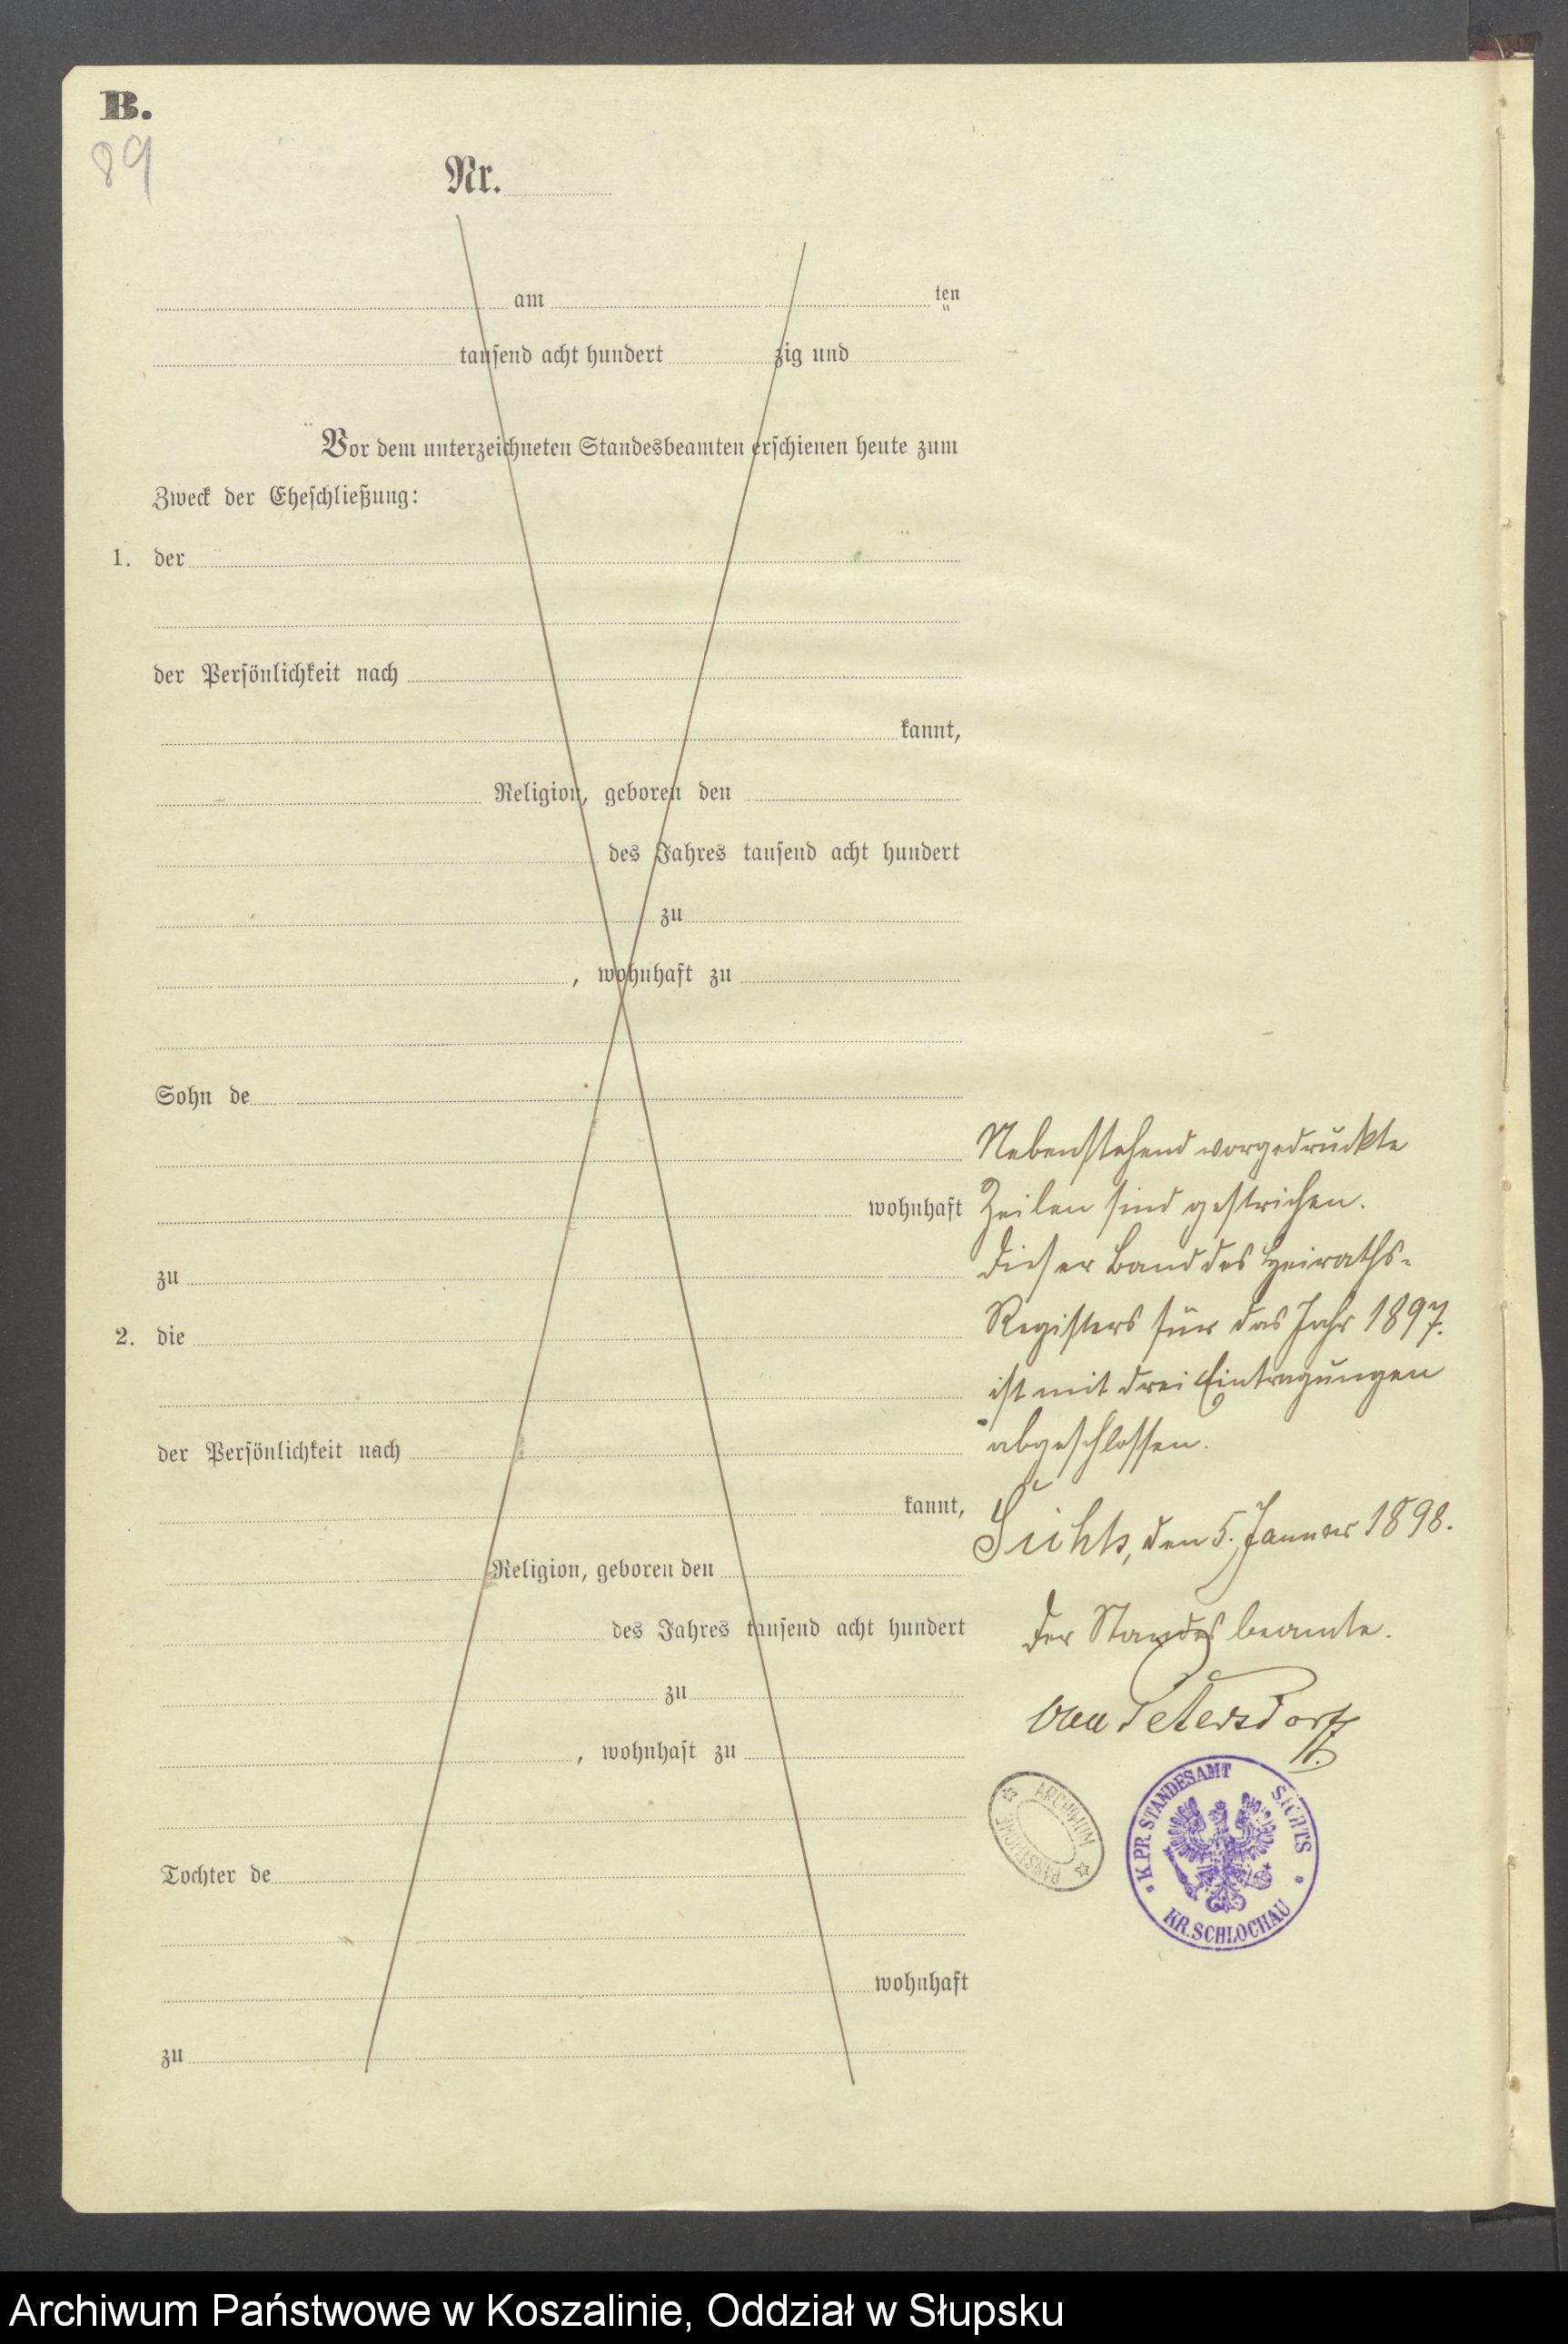 B.
89
Nr.
am ten
tausend acht hundert zig und
Vor dem unterzeichneten Standesbeamten erschienen heute zum
Zweck der Eheschließung:
1. der
der Persönlichkeit nach
kannt,
Religion, geboren den
des Jahres tausend acht hundert
zu
, wohnhaft zu
Sohn de
wohnhaft
zu
2. die
der Persönlichkeit nach
kannt,
Religion, geboren den
des Jahres tausend acht hundert
zu
, wohnhaft zu
Tochter de
wohnhaft
zu
Nebenstehend vorgedruckte
Zeilen sind gestrichen.
Dieser Band des Heiraths-
Registers für das Jahr 1897.
ist mit drei Eintragungen
abgeschlossen.
Sichts, den 5. Januar 1898.
Der Standesbeamte.
von Petersdorff.
ARCHIWUM PAŃSTWOWE
K. PR. STANDESAMT SICHTS
KR. SCHLOCHAU
Archiwum Państwowe w Koszalinie, Oddział w Słupsku